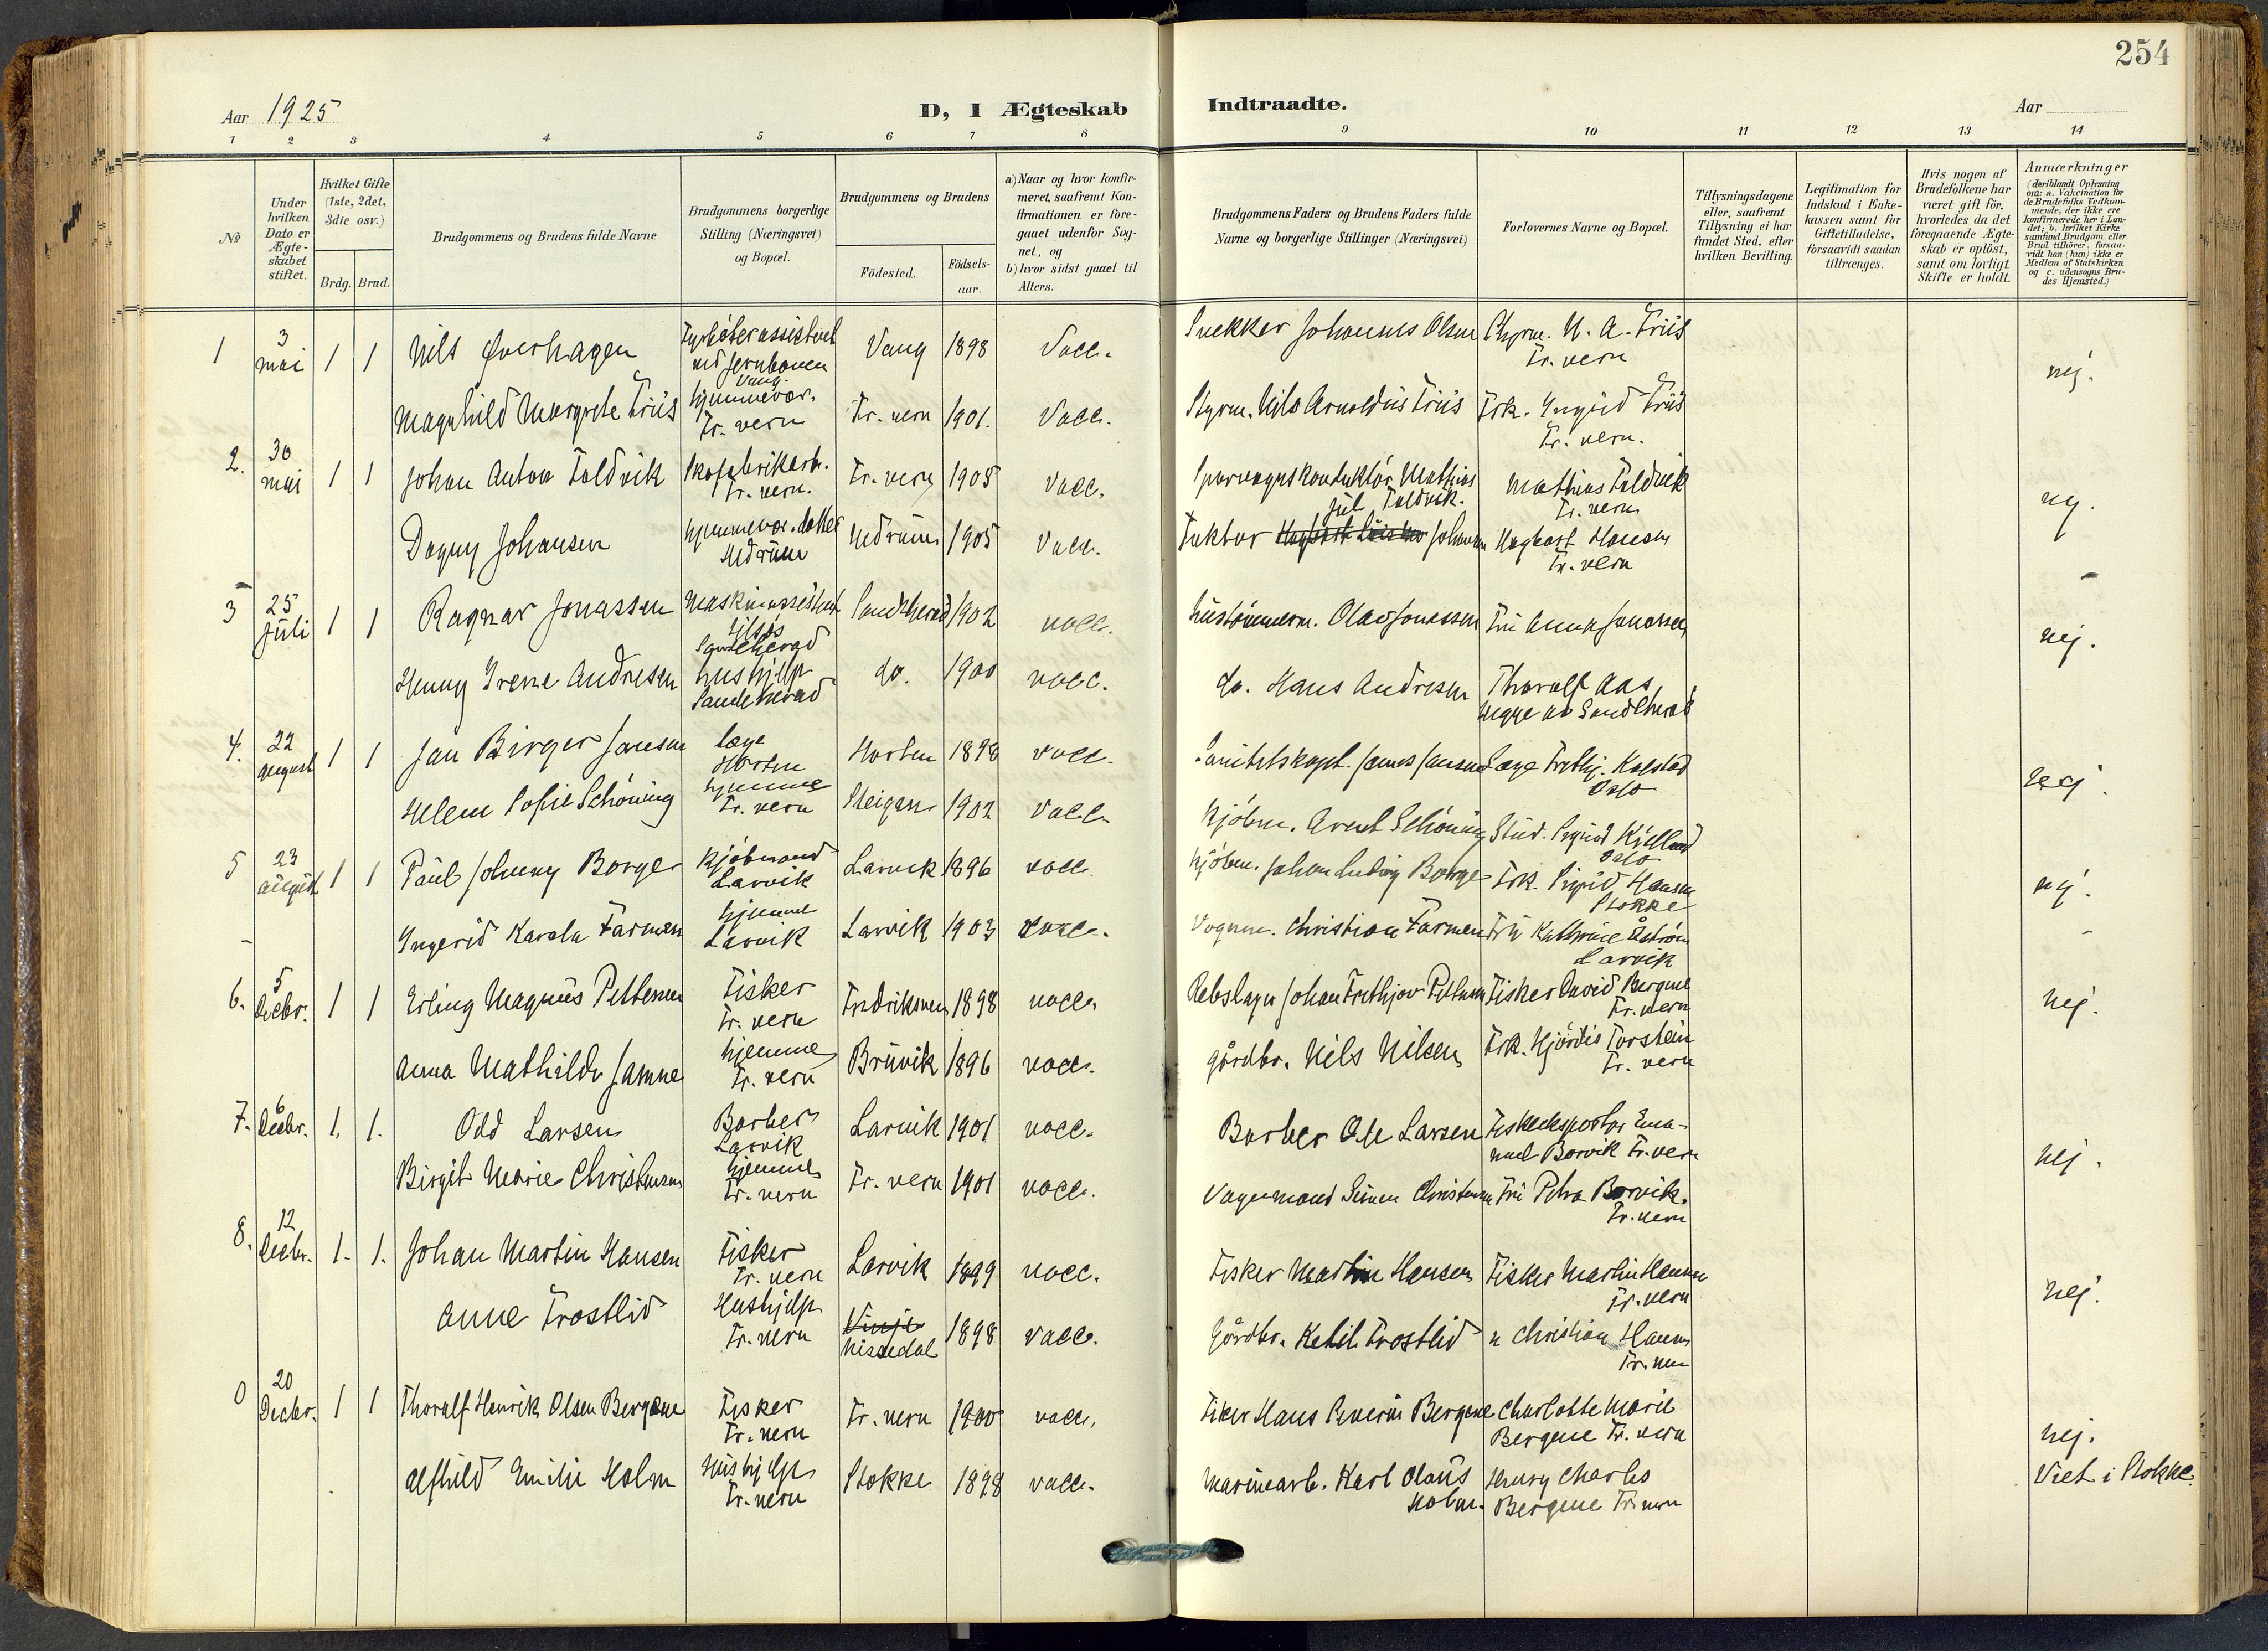 254
Aar 1925
D, I Ægteskab Indtraadte.
Aar
1 2 3 4 5 6 7 8 9 10 11 12 13 14
No
Under hvilken Dato er Ægteskabet stiftet.
Hvilket Gifte (1ste, 2det, 3die osv.)
Brdg. Brud.
Brudgommens og Brudens fulde Navne
Brudgommens borgerlige Stilling (Næringsvei) og Bopæl.
Brudgommens og Brudens
Födested.
Födselsaar.
a) Naar og hvor konfirmeret, saafremt Konfirmationen er foregaaet udenfor Sognet, og
b) hvor sidst gaaet til Alters.
Brudgommens Faders og Brudens Faders fulde Navne og borgerlige Stillinger (Næringsvei)
Forlovernes Navne og Bopæl.
Tillysningsdagene eller, saafremt Tillysning ei har fundet Sted, efter hvilken Bevilling.
Legitimation for Indskud i Enkekassen samt for Giftetilladelse, forsaavidt saadan tiltrænges.
Hvis nogen af Brudefolkene har været gift för, hvorledes da det foregaaende Ægteskab er oplöst, samt om lovligt Skifte er holdt.
Anmærkninger
(deriblandt Oplysning om: a. Vakcination for de Brudefolks Vedkommende, der ikke ere konfirmerede her i Landet; b. hvilket Kirkesamfund Brudgom eller Brud tilhörer, forsaavidt han (hun) ikke er Medlem af Statskirken og c. udensogns Brudes Hjemsted.)
1 3 mai 1 1 Nils Øverhagen
ved jernbanen Vang
Vang 1898 Vacc. Snekker Johannes Olsen
Styrm. N. A. Friis
Fr. vern
nej.
Magnhild Margrete Friis
hjemmevær.
Fr. vern
Fr. vern 1901. Vacc. Styrm. Nils Arnoldus Friis
Frk. Ingrid Friis
Fr. vern.
2. 30 mai 1 1 Johan Anton Foldvik
Skofabrikarb.
Fr. vern.
Fr. vern 1905 vacc. Sporvognskonduktör Mathias
Jul. Foldvik.
Mathias Foldvik
Fr. vern
nej.
Dagny Johansen
hjemmevær. datter
Hedrum
Hedrum 1905 Vacc.
Johansen
Hagbart Hansen
Fr. vern
3 25 Juli 1 1 Ragnar Jonassen
Maskinassistent
Sandeherad
Sandeherad 1902 vacc. hustömmerm. Olaus Jonassen
Fru Anna Jonassen
nej.
Henny Irene Andresen
hushjelp
Sandeherad
do. 1900 vacc. do. Hans Andresen
Thoralf Aas
begge av Sandeherad
4. 22 august 1 1 Jan Birger Jansen
læge
Horten
Horten 1898 vacc. Sanitetskapt. James Jansen
Læge Frithj. Kolstad
Oslo
nej.
Helene Sofie Schöning
hjemme
Fr. vern
Steigen 1902 vacc. Kjöbm. Arent Schöning
Stud. Sigurd Kielland
Oslo
5 23 august 1 1 Paul Johnny Borge
Kjöbmand
Larvik
Larvik 1896 vacc. Kjöbm. Johan Ludvig Borge
Frk. Sigrid Hansen
Stokke
nej.
Ingerid Karola Farmen
hjemme
Larvik
Larvik 1903 vacc. Vognm. Christian Farmen
Fru Kathrine
Larvik
6. 5 Decbr. 1 1 Erling Magnus Pettersen
Fisker
Fr. vern
Fredriksvern 1898 vacc. Rebslager Johan Frithjov Pettersen
Fisker David Bergene
Fr. vern
nej.
Anna Mathilde Samne
hjemme
Fr. vern
Bruvik 1896 vacc. gårdbr. Nils Nilsen
Frk. Hjördis Torstein
Fr. vern
7. 6 Decbr. 1. 1. Odd Larsen
Barber
Larvik
Larvik 1901 vacc. Barber Ole Larsen
Fiskeeksportör Ema-
nuel Borvik Fr. vern
nej.
Birgit Marie Christensen
hjemme
Fr. vern
Fr. vern 1901 vacc. Vognmand Simen Christensen
Fru Petra Borvik.
Fr. vern
8. 12 Decbr. 1. 1. Johan Martin Hansen
Fisker
Fr. vern
Larvik 1899 vacc. Fisker Martin Hansen
Fisker Martin Hansen
Fr. vern
nej.
Anne Frostlid
Hushjelp
Fr. vern
Vinje
Nissedal 1898 vacc. Gårdbr. Ketil Frostlid
" Christian Hansen
Fr. vern
0 20 Decbr. 1 1 Thoralf Henrik Olsen Bergene
Fisker
Fr. vern
Fr. vern 1900 vacc. Fisker Hans Severin Bergene
Charlotte Marie
Bergene Fr. vern
nej.
Alfhild Emilie Holm
Hushjelp
Fr. vern
Stokke 1898 vacc. Marinearb. Karl Olaus
Holm.
Henry Charles
Bergene Fr. vern
Viet i Stokke.